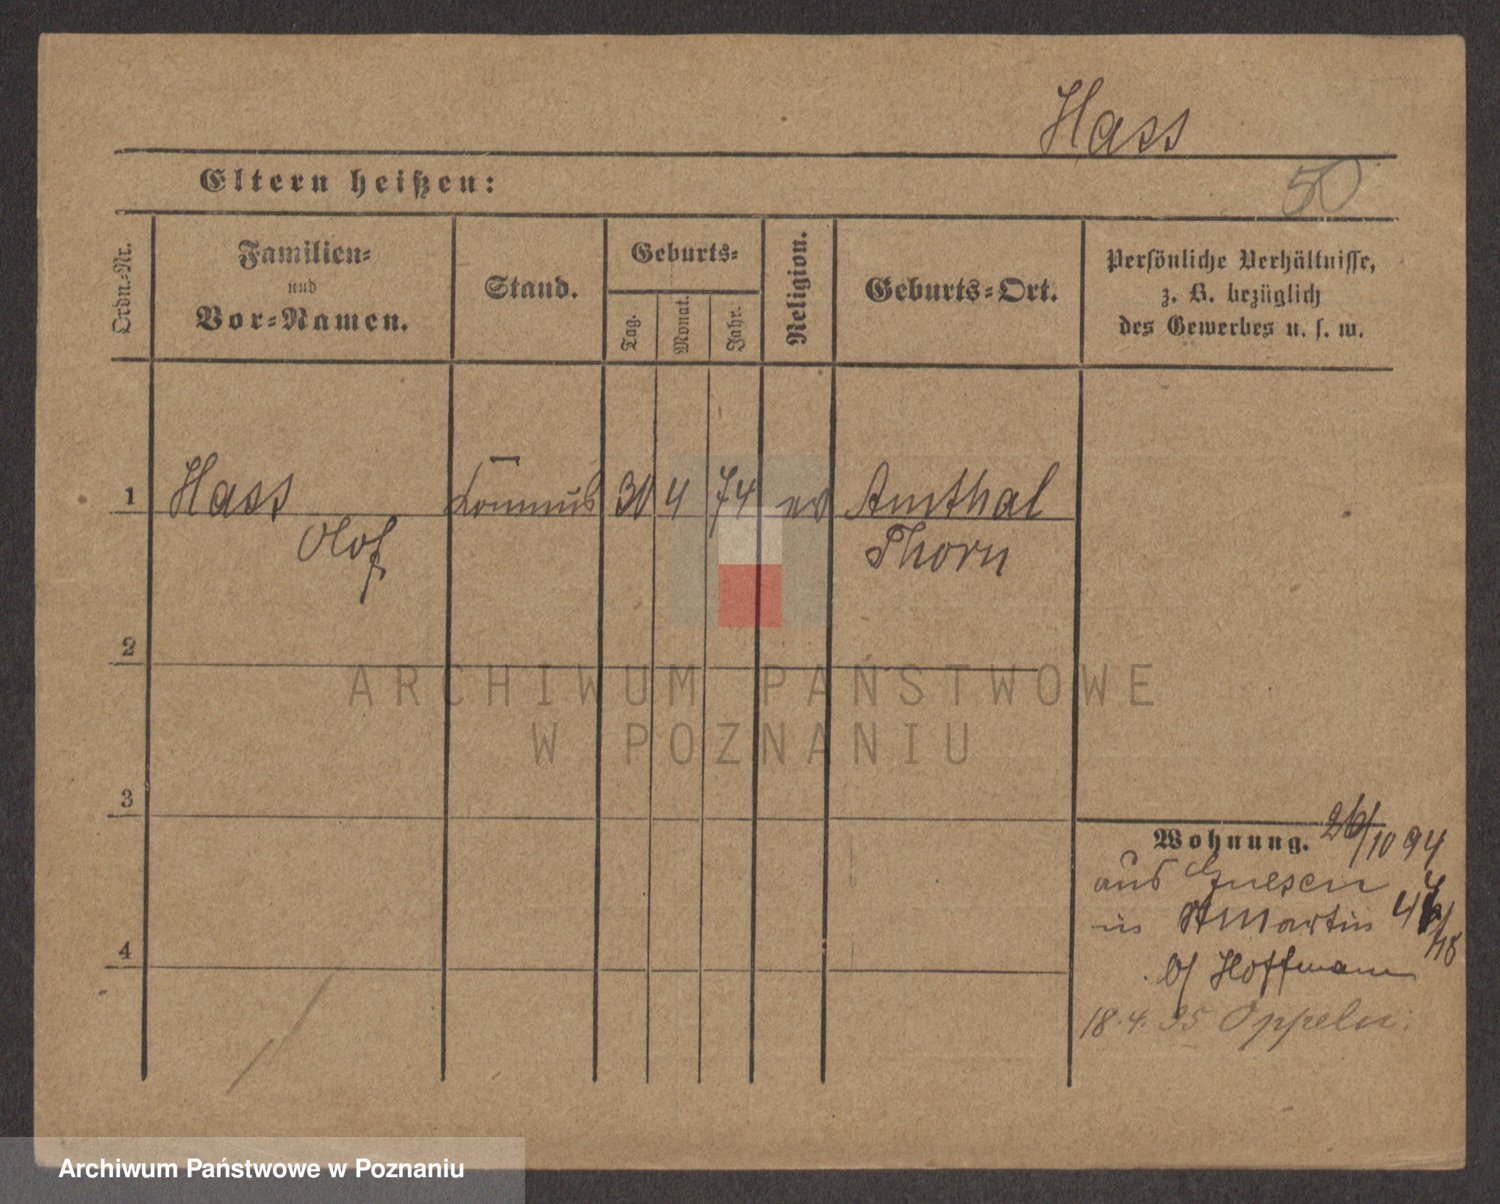 Hass
Eltern heißen:
50
Ordn.-Nr.
Familien-
und
Vor-Namen.
Stand.
Geburts-
Tag.
Monat.
Jahr.
Religion.
Geburts-Ort.
Persönliche Verhältnisse,
z. B. bezüglich
des Gewerbes u. s. w.
1 Hass 30 4 74 ev Amthal
Olof Thorn
2
ARCHIWUM PAŃSTWOWE
W POZNANIU
3
Wohnung. 26/10 94
aus Gnesen
in St Martin
b/ Hoffmann
4
18.4.95 Oppeln.
Archiwum Państwowe w Poznaniu